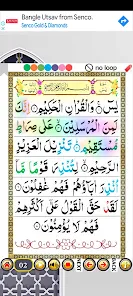 Bangle Utsav from Senco.
Senco Gold & Diamonds
no loop
يسٓ ۝ وَالْقُرْاٰنِ الْحَكِيْمِ ۝ اِنَّكَ
لَمِنَ الْمُرْسَلِيْنَ ۝ عَلٰى صِرَاطٍ
مُّسْتَقِيْمٍ ۝ تَنْزِيْلَ الْعَزِيْزِ
الرَّحِيْمِ ۝ لِتُنْذِرَ قَوْمًا مَّاۤ
اُنْذِرَ اٰبَآؤُهُمْ فَهُمْ غٰفِلُوْنَ ۝
لَقَدْ حَقَّ الْقَوْلُ عَلٰۤى اَكْثَرِهِمْ
فَهُمْ لَا يُؤْمِنُوْنَ ۝
02